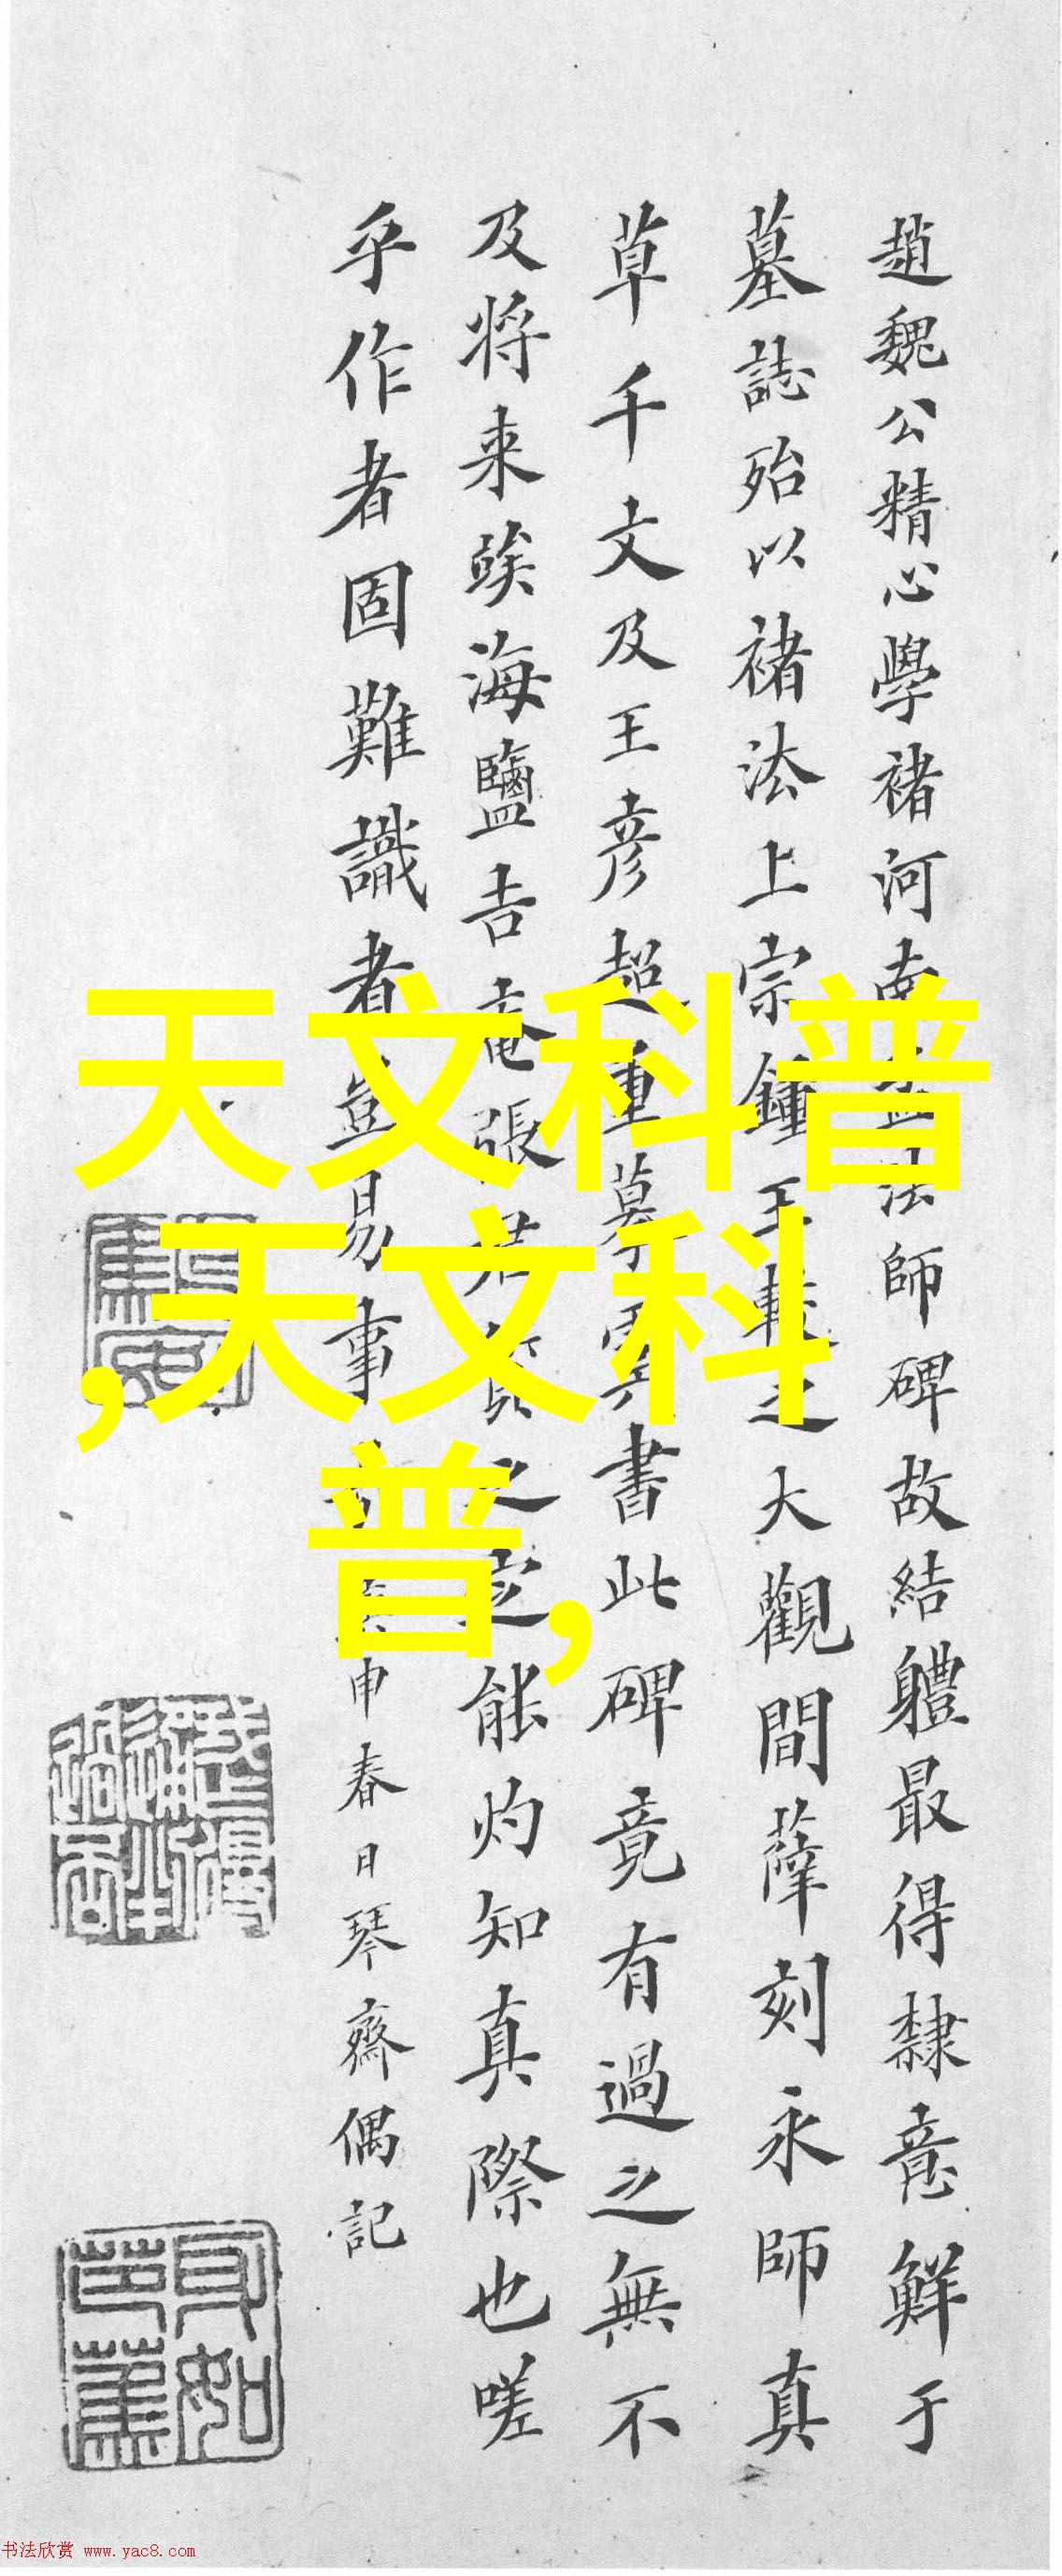 趙魏公精心學褚河南孟法師碑故結軆最得隸意鮮于
墓誌殆以褚法上宗鍾王輓之大觀間薛刻永師真
草千文及王彦超重摹虞書此碑竟有過之無不
及将来竢海鹽吉庵張君質之定能灼知真際也嗟
乎作者固難識者豈易事申春日琴齋偶記
天文科普
,天文科
普,
书法欣赏 www.yac8.com